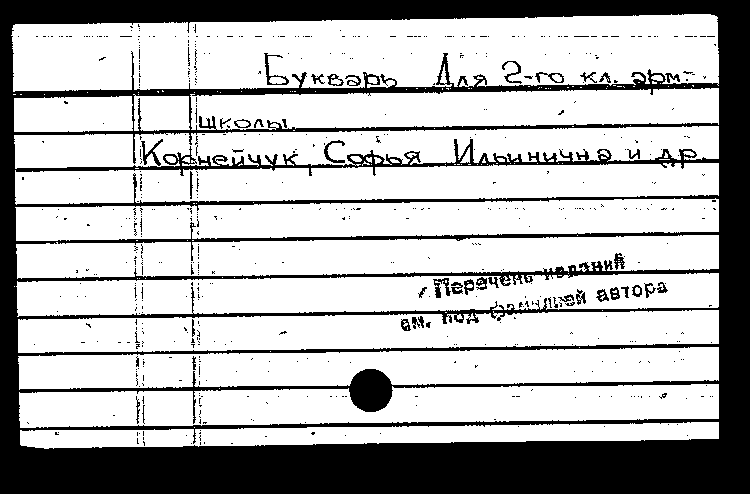 Букварь Для 2-го кл. арм.
школы.
Корнейчук, Софья Ильинична и др.
Перечень изданий
см. под фамилией автора